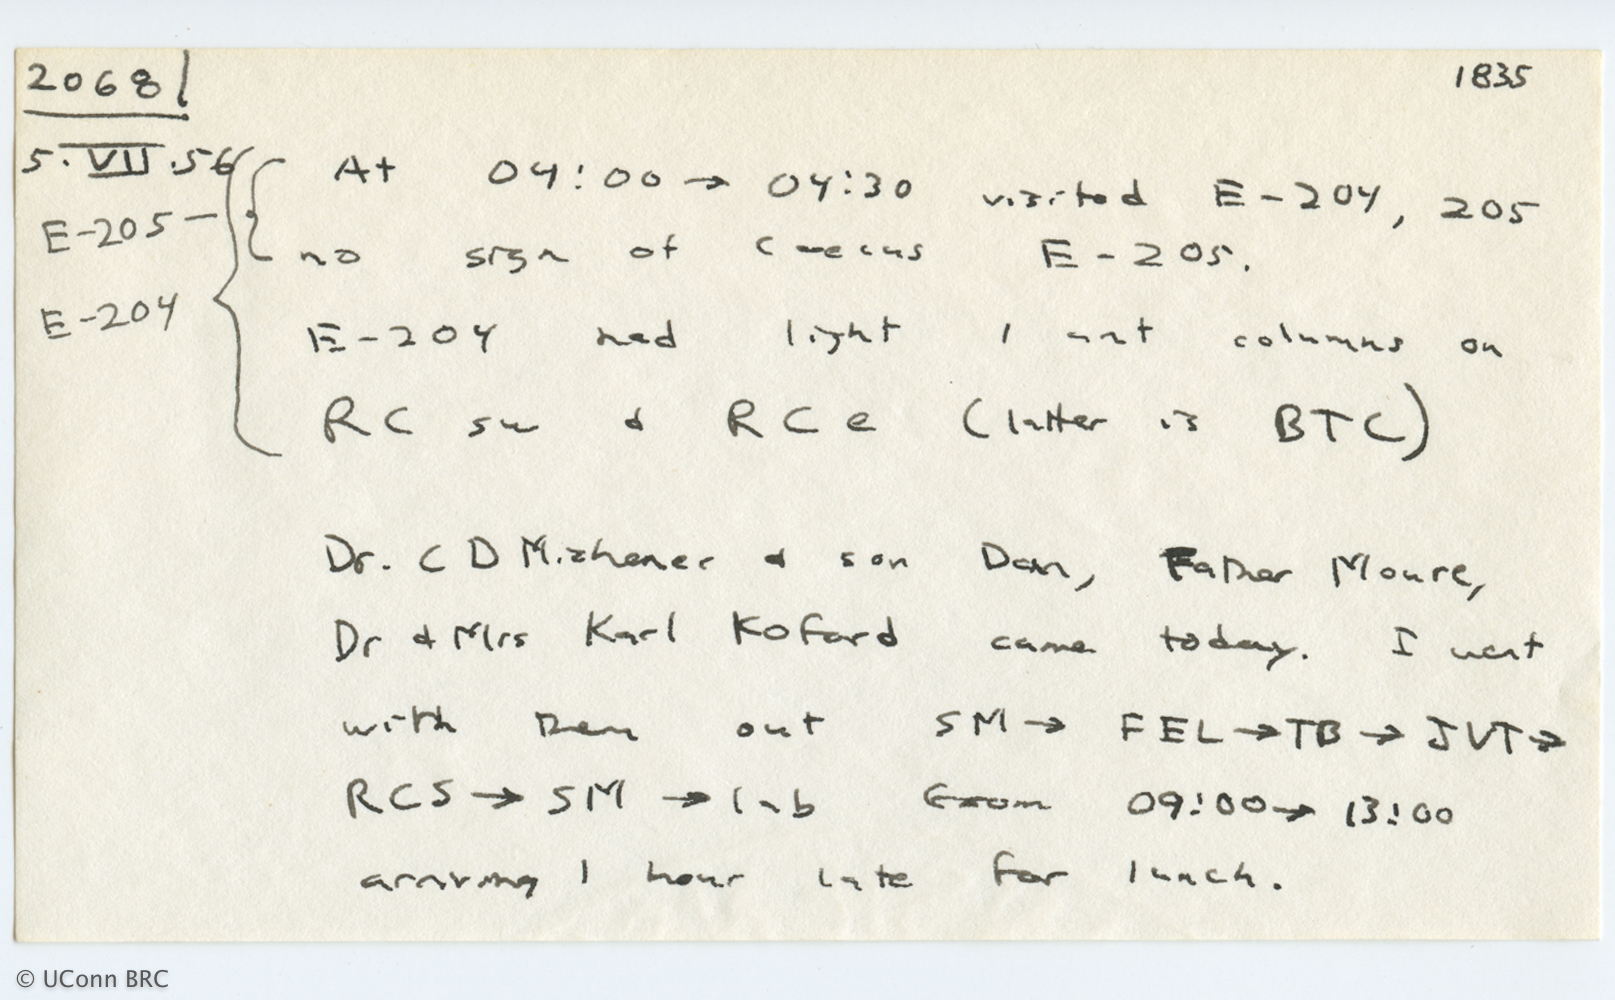 2068 1835
5.VII.56 At 04:00 → 04:30 visited E-204, 205
E-205 — no sign of caecus E-205.
E-204 E-204 had light 1 ant columns on
RC sw & RC e (latter is BTC)
Dr. C D Michener & son Dan, Father Moure,
Dr & Mrs Karl Koford came today. I went
with them out SM → FEL → TB → JVT →
RCS → SM → lab from 09:00 → 13:00
arriving 1 hour late for lunch.
© UConn BRC